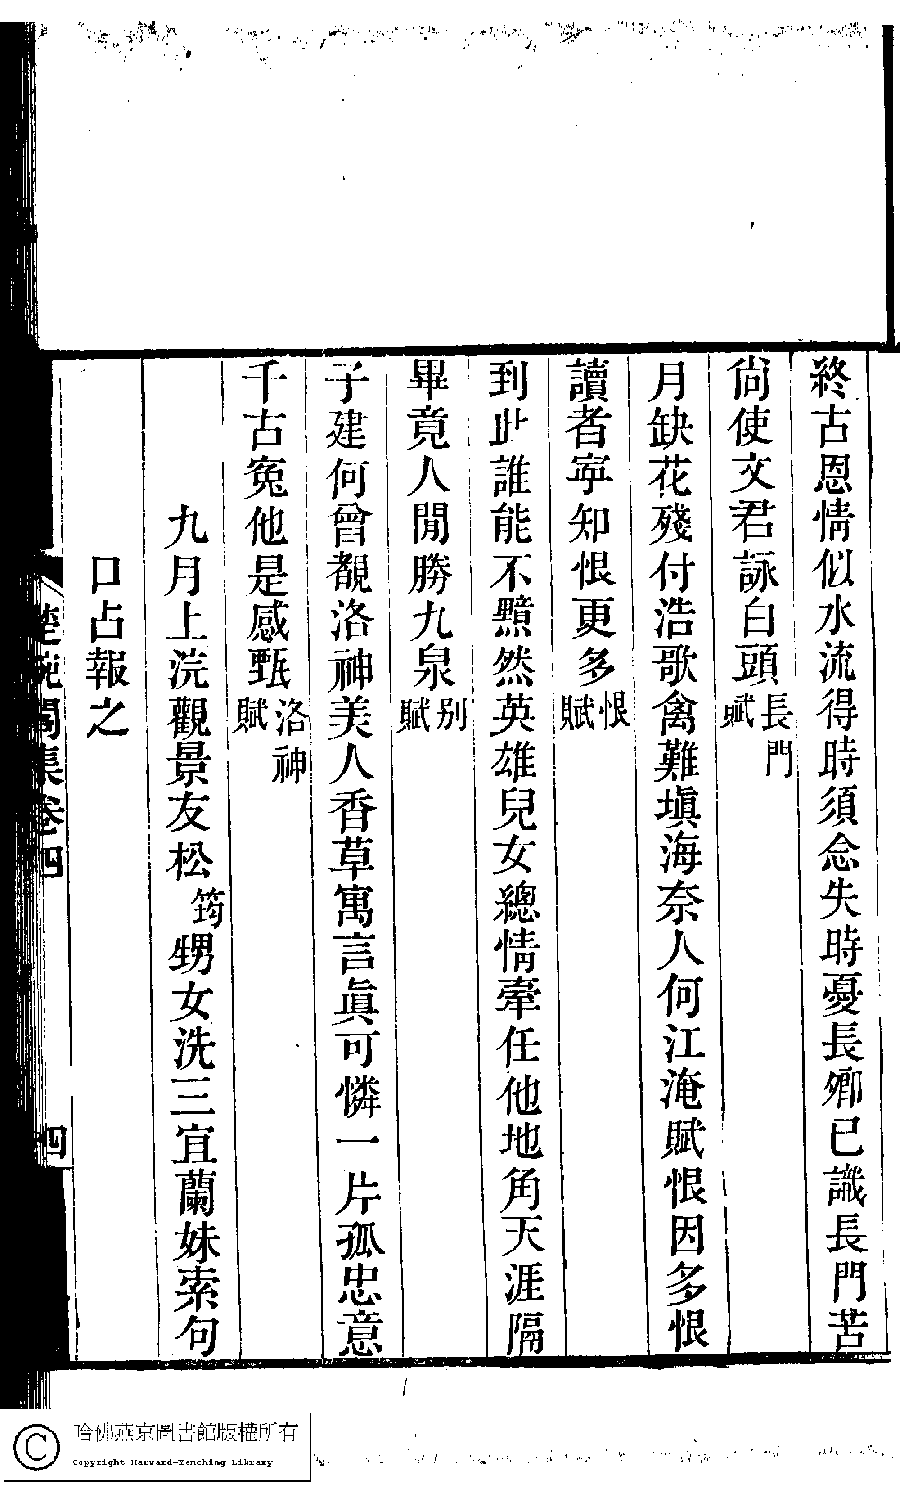 終古恩情似水流得時須念失時憂長卿已識長門苦
尙使文君詠白頭長門賦
月缺花殘付浩歌禽難塡海奈人何江淹賦恨因多恨
讀者寧知恨更多恨賦
到此誰能不黯然英雄兒女總情牽任他地角天涯隔
畢竟人閒勝九泉别賦
子建何曾覩洛神美人香草寓言眞可憐一片孤忠意
千古寃他是感甄洛神賦
九月上浣觀景友松筠甥女洗三宜蘭妹索句
口占報之
楚畹閣集卷四
四
哈佛燕京圖書館版權所有
Copyright Harvard-Yenching Library